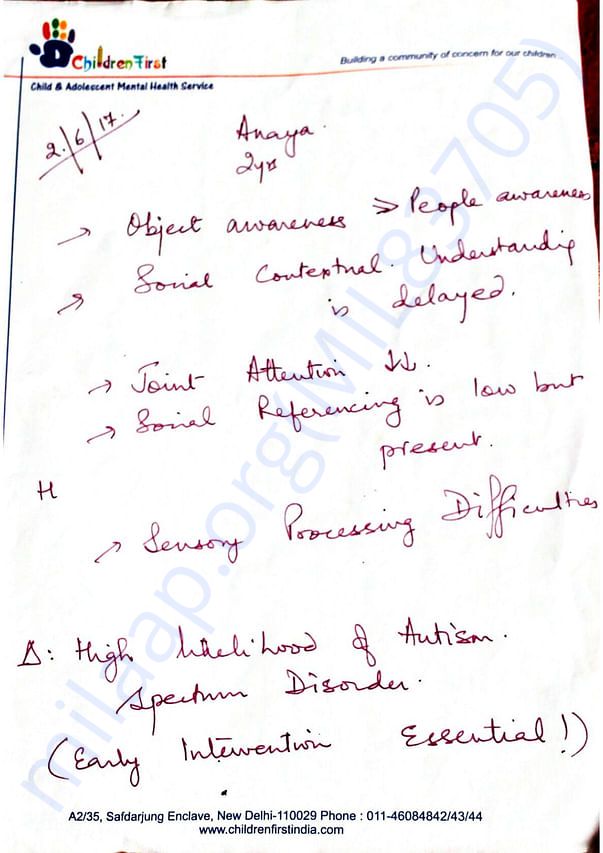 Children First
Building a community of concern for our children
Child & Adolescent Mental Health Service
2/6/17.
Anaya.
2yrs
→ Object awareness > People awareness
→ Social Contextual. Understanding
is delayed.
→ Joint Attention ↓↓.
→ Social Referencing is low but
present.
H
→ Sensory Processing Difficulties
Δ: High likelihood of Autism.
Spectrum Disorder.
(Early Intervention Essential!)
A2/35, Safdarjung Enclave, New Delhi-110029 Phone : 011-46084842/43/44
www.childrenfirstindia.com
milaap.org(MIL83705)